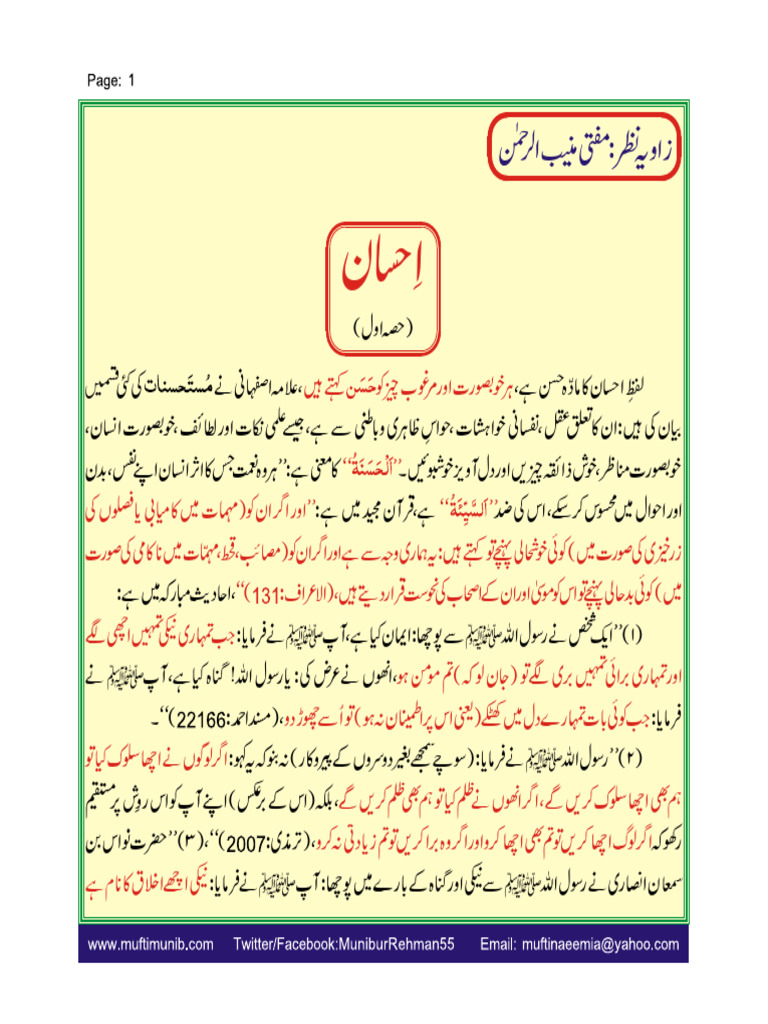 Page: 1
زاویہ نظر: مفتی منیب الرحمٰن
اِحسان
(حصہ اول)
لفظِ احسان کا مادّہ حسن ہے، ہر خوبصورت اور مرغوب چیز کو حَسَن کہتے ہیں، علامہ اصفہانی نے مُستَحسنات کی کئی قسمیں
بیان کی ہیں: ان کا تعلق عقل، نفسانی خواہشات، حواسِ ظاہری و باطنی سے ہے، جیسے علمی نکات اور لطائف، خوبصورت انسان،
خوبصورت مناظر، خوش ذائقہ چیزیں اور دل آویز خوشبوئیں۔ ’’اَلْحَسَنَةُ‘‘ کا معنی ہے: ’’ہر وہ نعمت جس کا اثر انسان اپنے نفس، بدن
اور احوال میں محسوس کر سکے، اس کی ضد ’’اَلسَّيِّئَةُ‘‘ ہے، قرآن مجید میں ہے: ’’اور اگر ان کو (مہمات میں کامیابی یا فصلوں کی
زرخیزی کی صورت میں) کوئی خوشحالی پہنچے تو کہتے ہیں: یہ ہماری وجہ سے ہے اور اگر ان کو (مصائب، قحط، مہمّات میں ناکامی کی صورت
میں) کوئی بدحالی پہنچے تو اس کو موسیٰ اور ان کے اصحاب کی نحوست قرار دیتے ہیں، (الاعراف:131)‘‘، احادیث مبارکہ میں ہے:
(۱) ’’ایک شخص نے رسول اللہ ﷺ سے پوچھا: ایمان کیا ہے، آپ ﷺ نے فرمایا: جب تمہاری نیکی تمہیں اچھی لگے
اور تمہاری برائی تمہیں بری لگے تو (جان لو کہ) تم مؤمن ہو، انھوں نے عرض کی: یا رسول اللہ! گناہ کیا ہے، آپ ﷺ نے
فرمایا: جب کوئی بات تمہارے دل میں کھٹکے (یعنی اس پر اطمینان نہ ہو) تو اُسے چھوڑ دو، (مسند احمد:22166)‘‘۔
(۲) ’’رسول اللہ ﷺ نے فرمایا: (سوچے سمجھے بغیر دوسروں کے پیروکار) نہ بنو کہ یہ کہو: اگر لوگوں نے اچھا سلوک کیا تو
ہم بھی اچھا سلوک کریں گے، اگر انھوں نے ظلم کیا تو ہم بھی ظلم کریں گے، بلکہ (اس کے برعکس) اپنے آپ کو اس روِش پر مستقیم
رکھو کہ اگر لوگ اچھا کریں تو تم بھی اچھا کرو اور اگر وہ برا کریں تو تم زیادتی نہ کرو، (ترمذی:2007)‘‘، (۳) ’’حضرت نواس بن
سمعان انصاری نے رسول اللہ ﷺ سے نیکی اور گناہ کے بارے میں پوچھا: آپ ﷺ نے فرمایا: نیکی اچھے اخلاق کا نام ہے
www.muftimunib.com Twitter/Facebook:MuniburRehman55 Email: muftinaeemia@yahoo.com